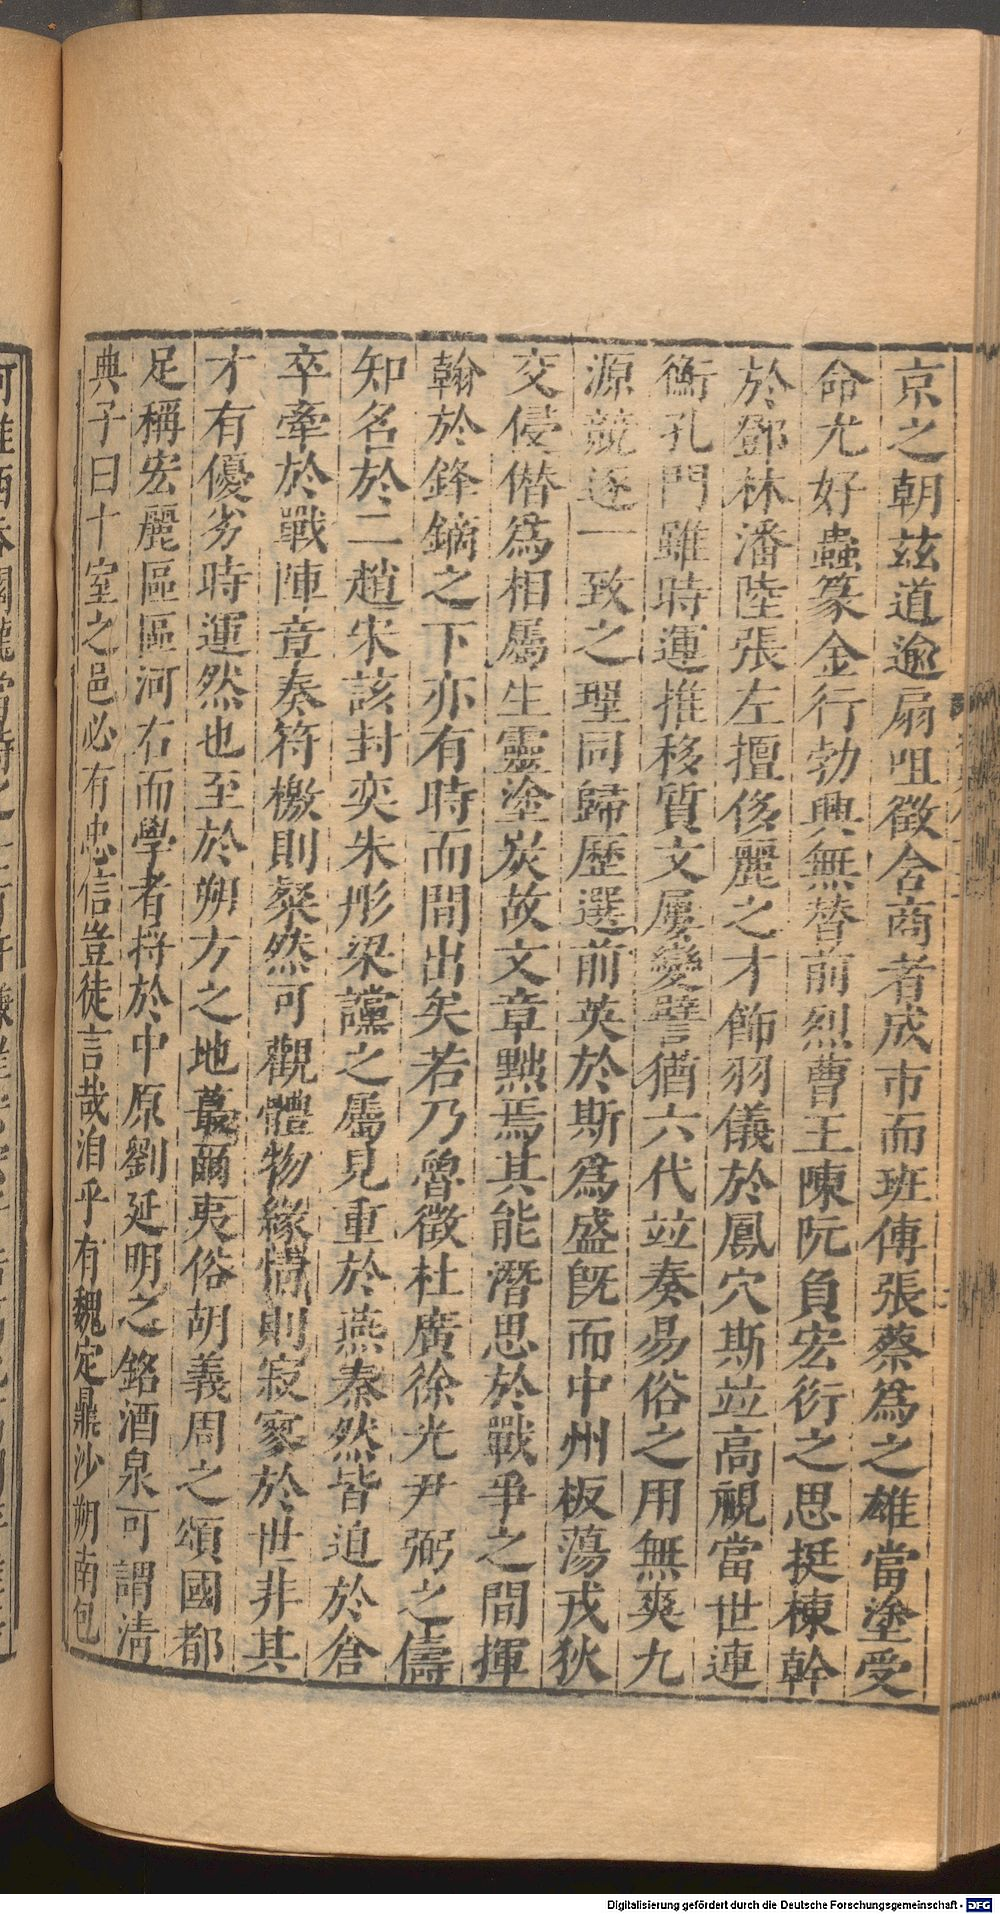 京之朝茲道逾扇咀徵含商者成市而班傅張蔡爲之雄當塗受
命尤好蟲篆金行勃興無替前烈曹王陳阮負宏衍之思挺棟幹
於鄧林潘陸張左擅侈麗之才飾羽儀於鳳穴斯竝高視當世連
衡孔門雖時運推移質文屢變譬猶六代竝奏易俗之用無爽九
源競逐一致之理同歸歷選前英於斯爲盛旣而中州板蕩戎狄
交侵僭爲相屬生靈塗炭故文章黜焉其能潛思於戰爭之間揮
翰於鋒鏑之下亦有時而間出矣若乃魯徵杜廣徐光尹弼之儔
知名於二趙宋該封奕朱彤梁讜之屬見重於燕秦然皆迫於倉
卒牽於戰陣章奏符檄則粲然可觀體物緣情則寂寥於世非其
才有優劣時運然也至於朔方之地蕞爾夷俗胡義周之頌國都
足稱宏麗區區河右而學者埒於中原劉延明之銘酒泉可謂清
典子曰十室之邑必有忠信豈徒言哉洎乎有魏定鼎沙朔南包
Digitalisierung gefördert durch die Deutsche Forschungsgemeinschaft - DFG